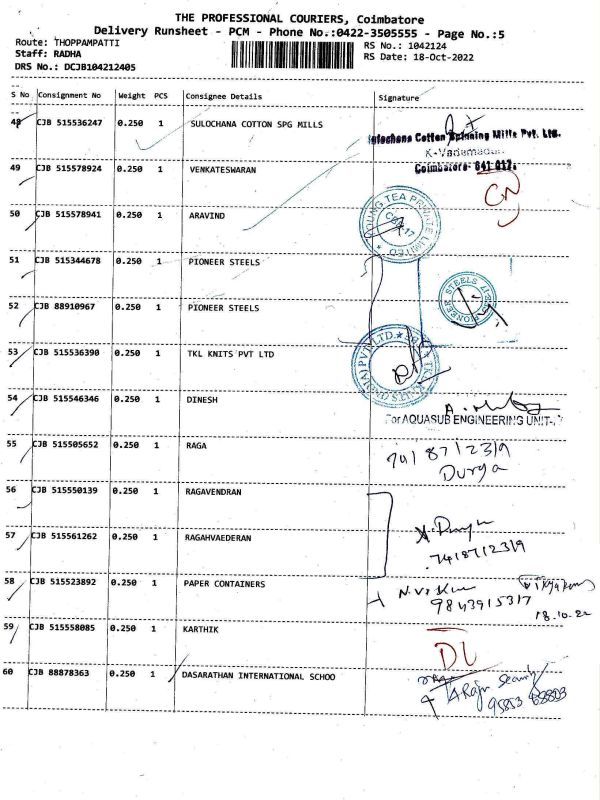 THE PROFESSIONAL COURIERS, Coimbatore
Delivery Runsheet - PCM - Phone No.:0422-3505555 - Page No.:5
Route: THOPPAMPATTI RS No.: 1042124
Staff: RADHA RS Date: 18-Oct-2022
DRS No.: DCJB104212405
S No Consignment No Weight PCS Consignee Details Signature
48 CJB 515536247 0.250 1 SULOCHANA COTTON SPG MILLS
Sulochana Cotton Spinning Mills Pvt. Ltd.
Coimbatore- 641 017.
49 CJB 515578924 0.250 1 VENKATESWARAN
CN
50 CJB 515578941 0.250 1 ARAVIND
TEA PRIVATE LIMITED
51 CJB 515344678 0.250 1 PIONEER STEELS
PIONEER STEELS
52 CJB 88910967 0.250 1 PIONEER STEELS
53 CJB 515536390 0.250 1 TKL KNITS PVT LTD
54 CJB 515546346 0.250 1 DINESH
For AQUASUB ENGINEERING UNIT-
55 CJB 515505652 0.250 1 RAGA
7418712319
Durga
56 CJB 515550139 0.250 1 RAGAVENDRAN
57 CJB 515561262 0.250 1 RAGAHVAEDERAN
7418712319
58 CJB 515523892 0.250 1 PAPER CONTAINERS
9843915317
18.10.22
59 CJB 515558085 0.250 1 KARTHIK
DL
60 CJB 88878363 0.250 1 DASARATHAN INTERNATIONAL SCHOO
Security